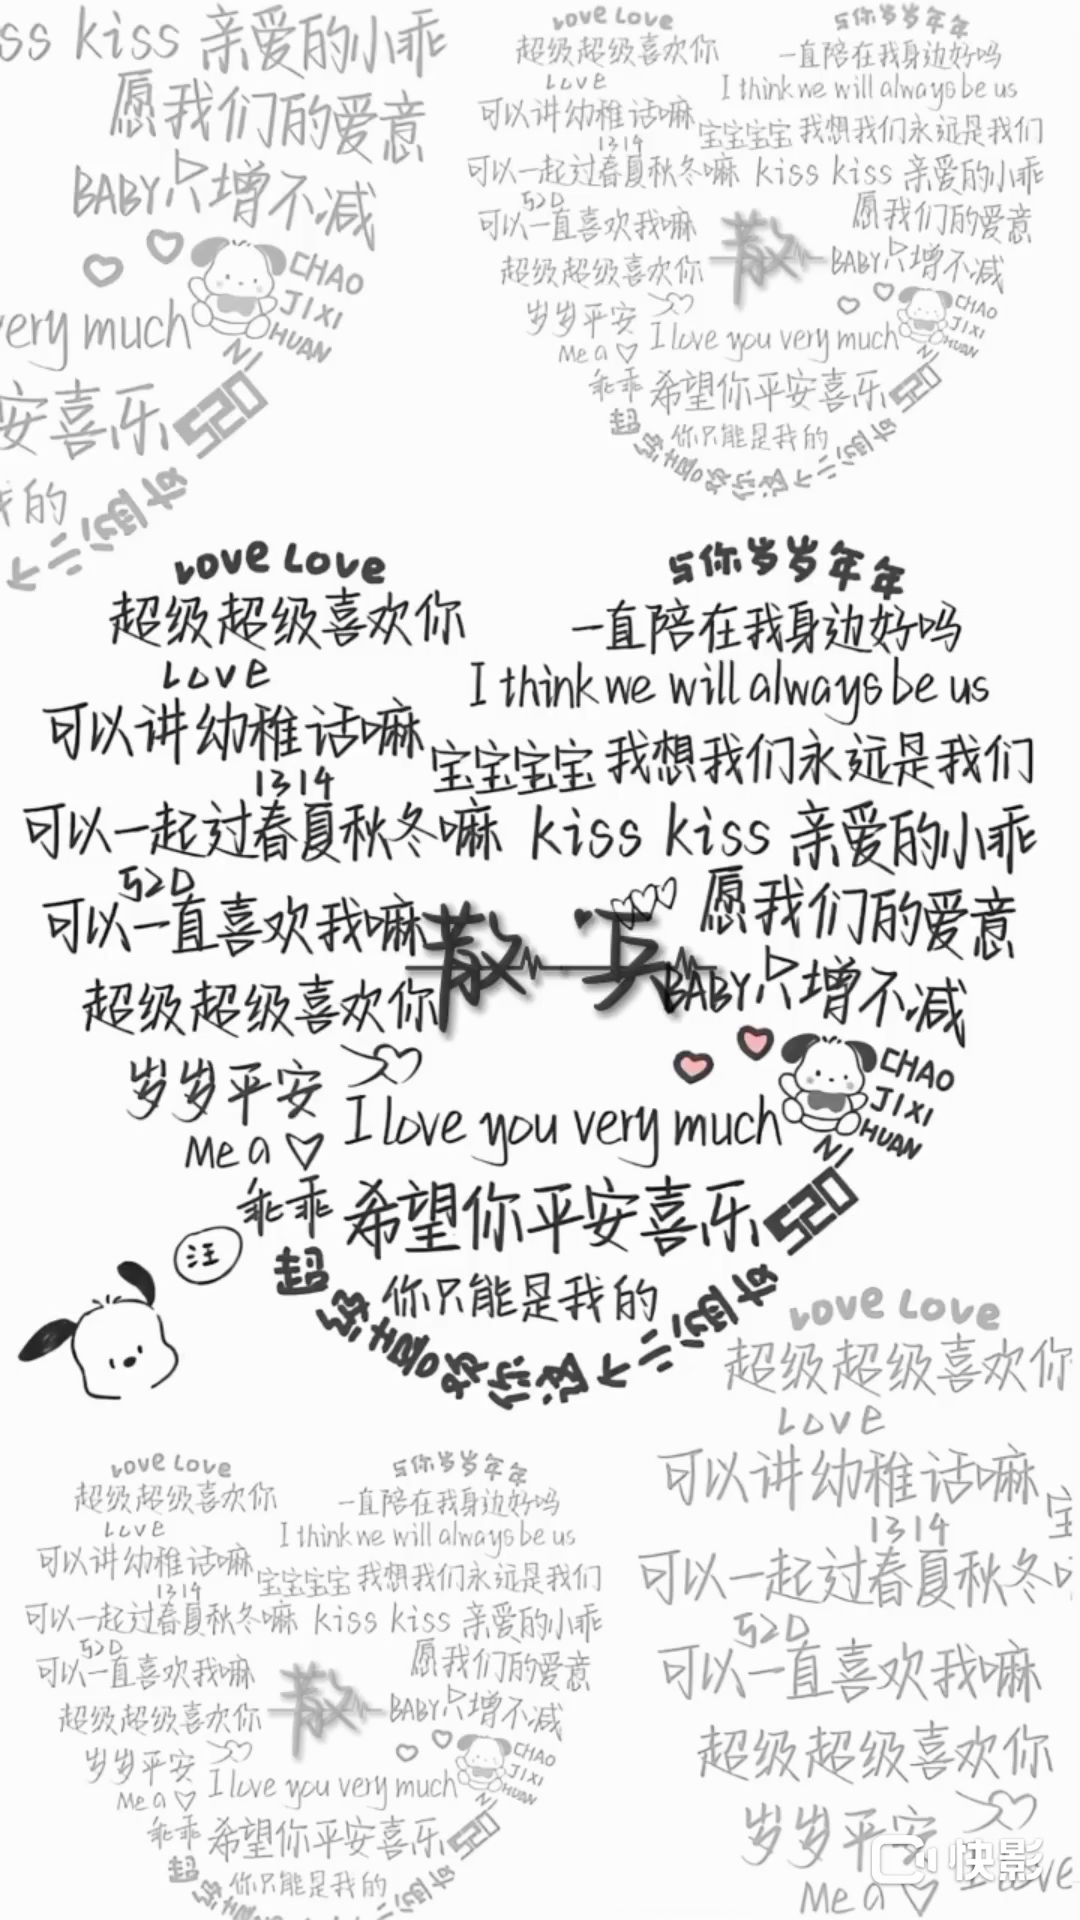 ss kiss 亲爱的小乖
愿我们的爱意
BABY只增不减
CHAO
JIXI
HUAN
NI
very much
安喜乐 520
我的
个二逼小
Love Love
与你岁岁年年
超级超级喜欢你
一直陪在我身边好吗
Love
I think we will always be us
可以讲幼稚话嘛
宝宝宝宝 我想我们永远是我们
1314
可以一起过春夏秋冬嘛 kiss kiss 亲爱的小乖
520
可以一直喜欢我嘛
愿我们的爱意
散
超级超级喜欢你
BABY只增不减
岁岁平安
CHAO
JIXI
HUAN
NI
I love you very much
Me a
乖乖 希望你平安喜乐 520
你只能是我的
Love Love
与你岁岁年年
超级超级喜欢你
一直陪在我身边好吗
Love
I think we will always be us
可以讲幼稚话嘛
宝宝宝宝 我想我们永远是我们
1314
可以一起过春夏秋冬嘛 kiss kiss 亲爱的小乖
520
可以一直喜欢我嘛
愿我们的爱意
散兵
超级超级喜欢你
BABY只增不减
岁岁平安
CHAO
JIXI
HUAN
NI
I love you very much
Me a
乖乖 希望你平安喜乐 520
你只能是我的
超级喜欢你这个二
汪
Love Love
超级超级喜欢你
Love
可以讲幼稚话嘛
1314
可以一起过春夏秋冬
520
可以一直喜欢我嘛
超级超级喜欢你
岁岁平安
I love
Me a
Love Love
与你岁岁年年
超级超级喜欢你
一直陪在我身边好吗
Love
I think we will always be us
可以讲幼稚话嘛
宝宝宝宝 我想我们永远是我们
1314
可以一起过春夏秋冬嘛 kiss kiss 亲爱的小乖
520
可以一直喜欢我嘛
愿我们的爱意
散
超级超级喜欢你
BABY只增不减
岁岁平安
CHAO
JIXI
HUAN
NI
I love you very much
Me a
乖乖 希望你平安喜乐 520
你只能是我的
快影